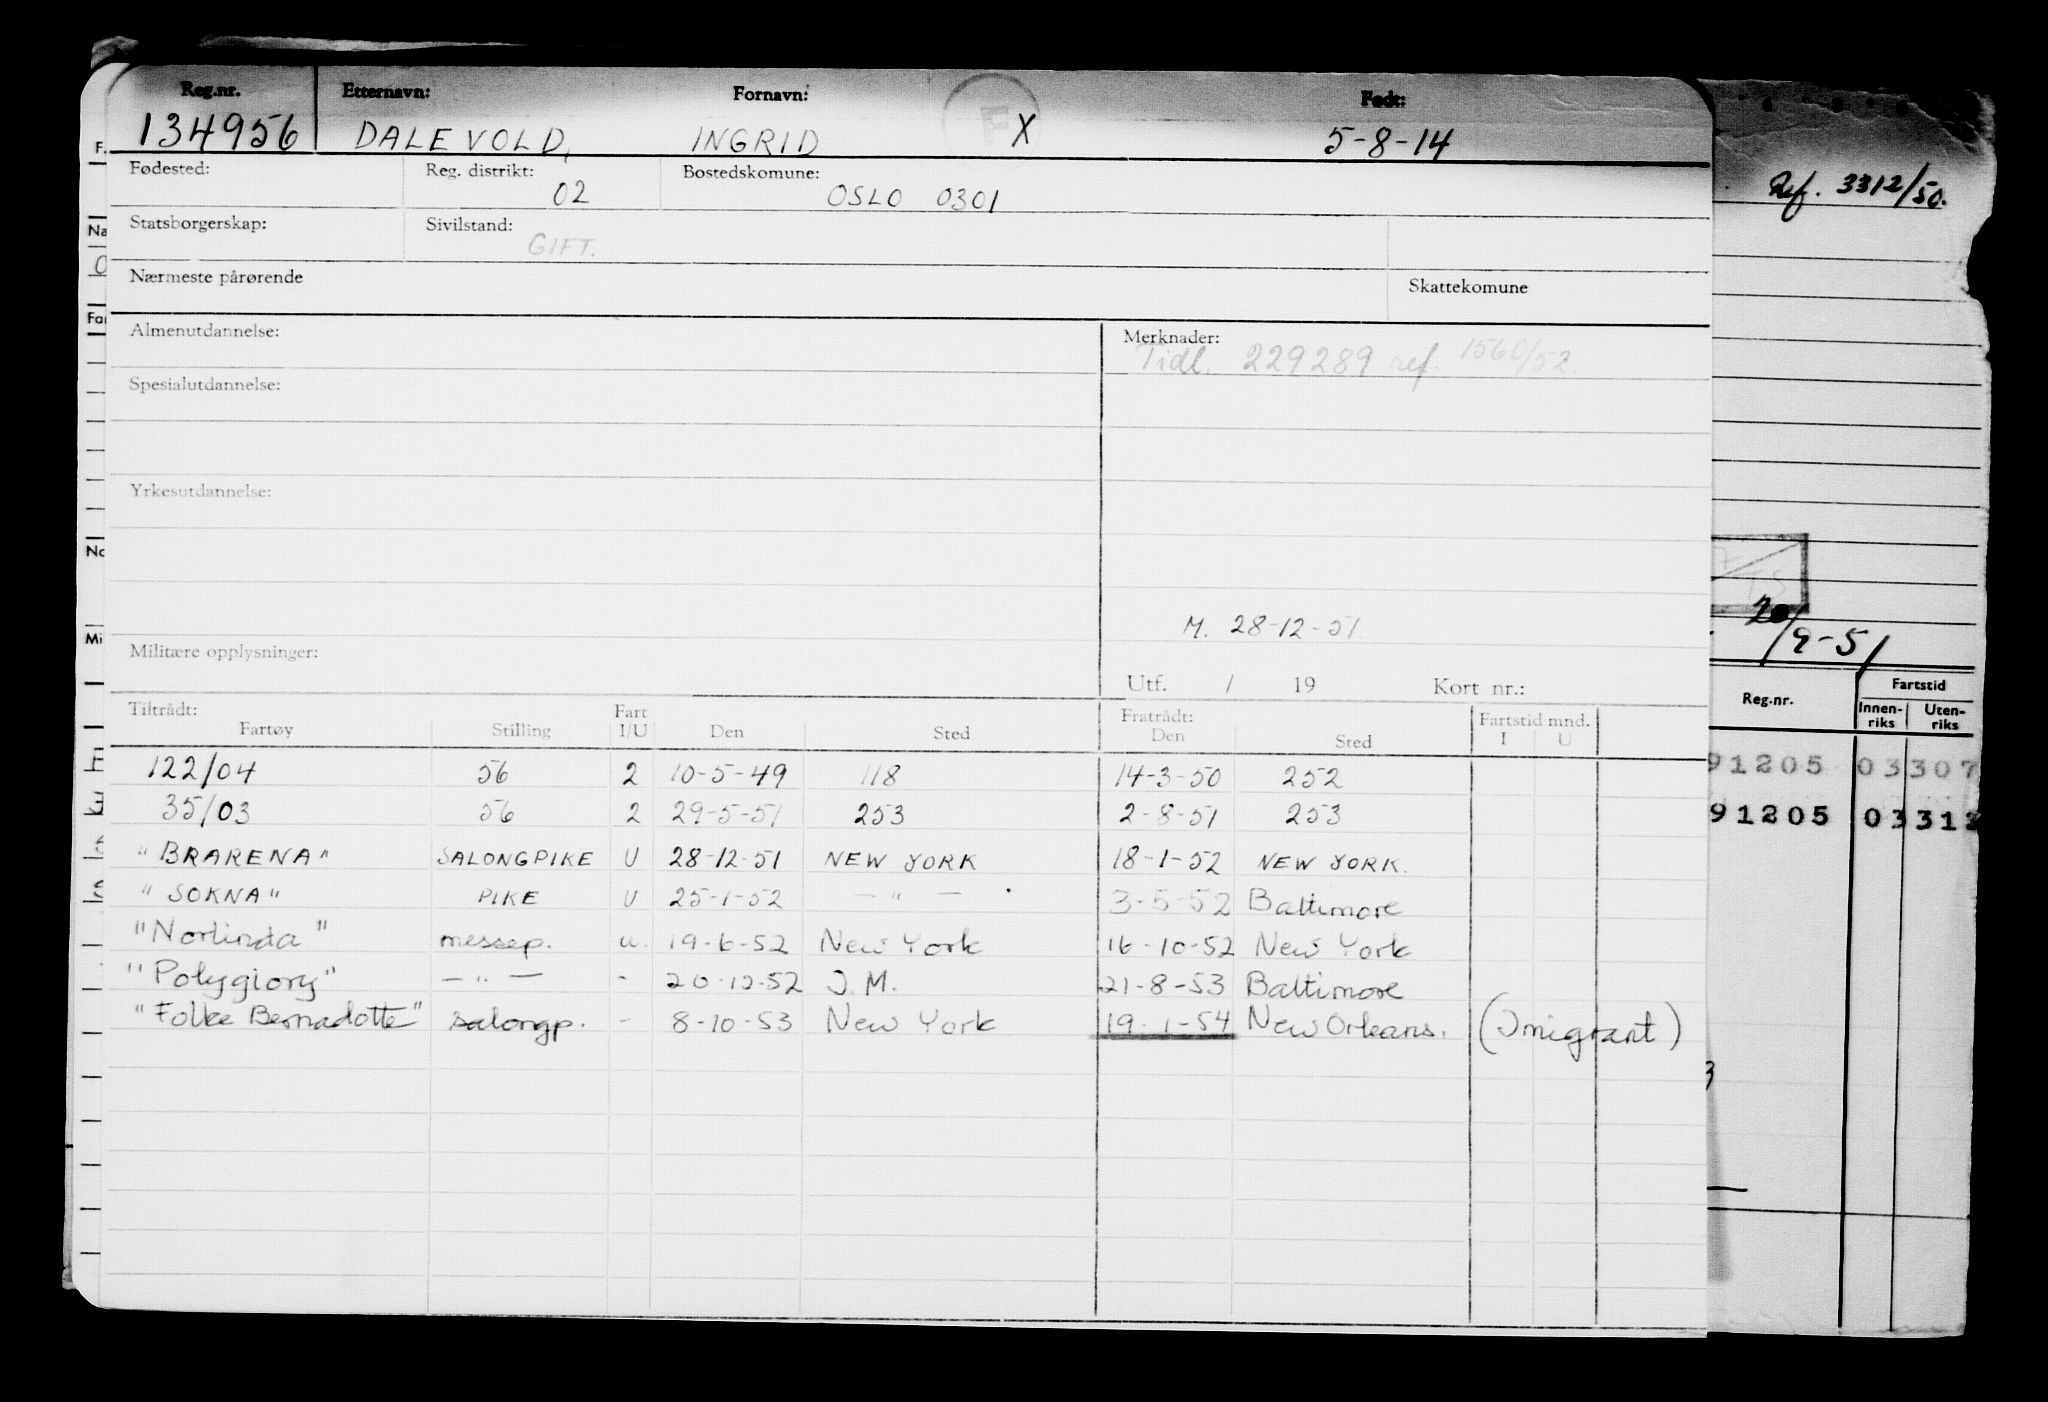 Reg.nr. Etternavn: Fornavn: Født:
134956 DALEVOLD, INGRID X 5-8-14
Fødested: Reg. distrikt: 02 Bostedskomune: OSLO 0301
Statsborgerskap: Sivilstand: GIFT.
Nærmeste pårørende Skattekomune
Almenutdannelse: Merknader:
Tidl. 229289 ref. 1560/52.
Spesialutdannelse:
Yrkesutdannelse:
M. 28-12-51.
Militære opplysninger:
Utf. / 19 Kort nr.:
Tiltrådt: Fart Fratrådt: Fartstid mnd.
Fartøy Stilling I/U Den Sted Den Sted I U
122/04 56 2 10-5-49 118 14-3-50 252
35/03 56 2 29-5-51 253 2-8-51 253
"BRARENA" SALONGPIKE U 28-12-51 NEW YORK 18-1-52 NEW YORK.
"SOKNA" PIKE U 25-1-52 — " — 3-5-52 Baltimore
"Norlinda" messep. u. 19-6-52 New York 16-10-52 New York
"Polyglory" — " — - 20-12-52 J.M. 21-8-53 Baltimore
"Folke Bernadotte" salongp. - 8-10-53 New York 19-1-54 New Orleans. (Imigrant)
Ref. 3312/50.
20/9-51
Reg.nr. Fartstid
Innen-riks Uten-riks
91205 03307
91205 03312
F.
Na
O
Far
No
Mi